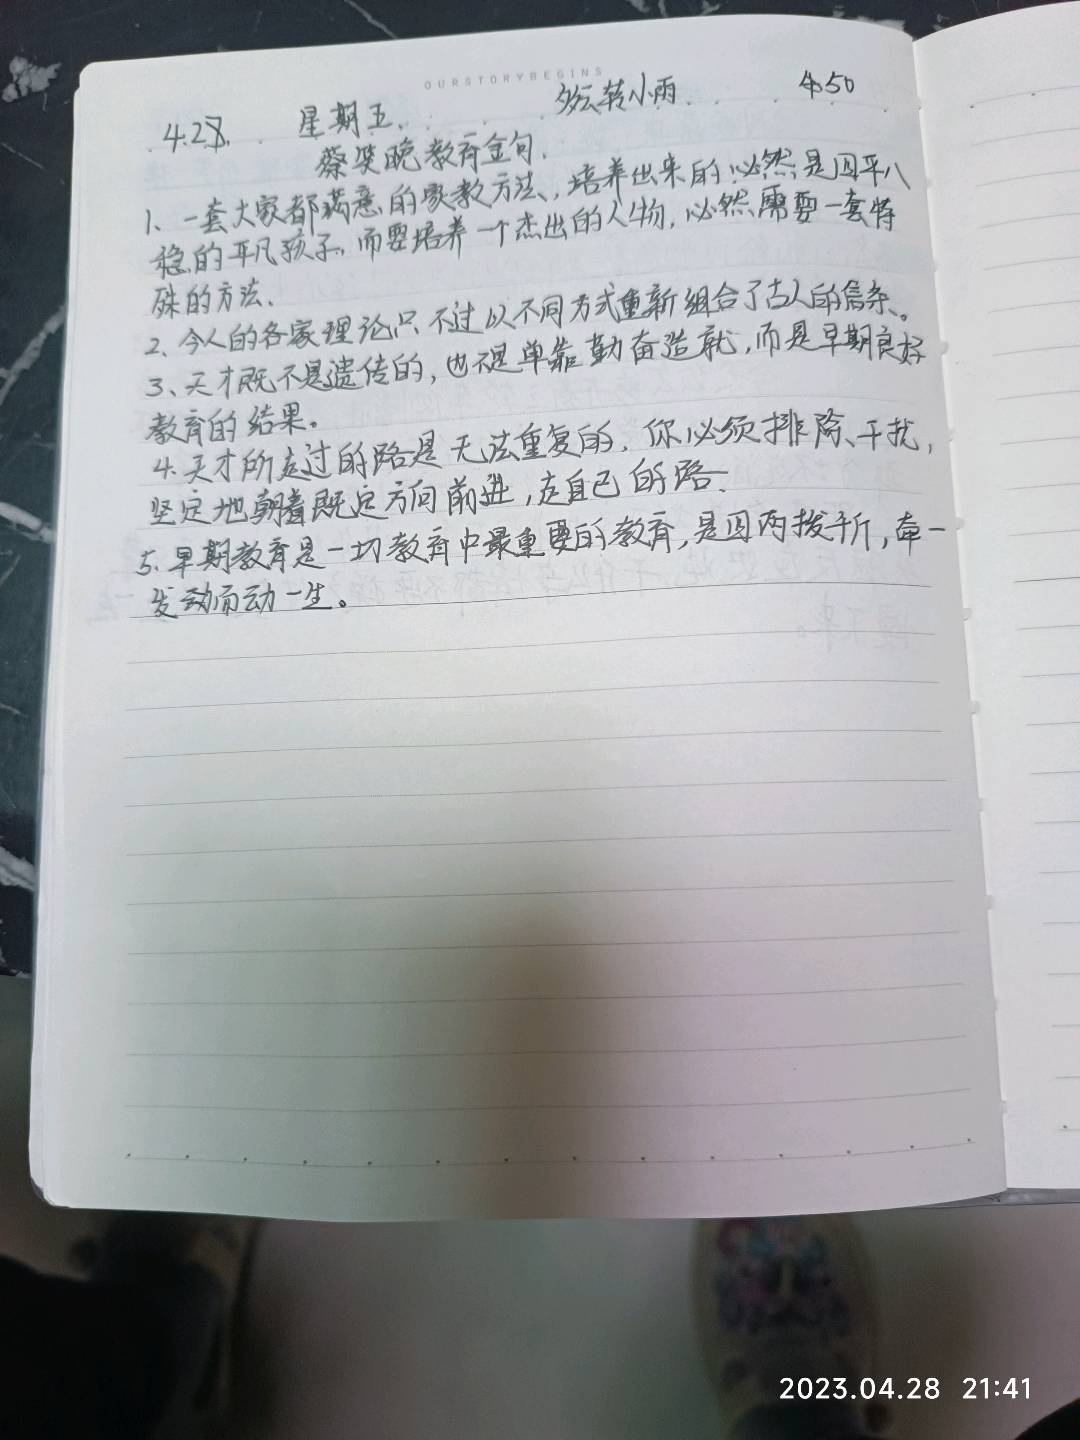 OURSTORYBEGINS
4.28. 星期五. 多云转小雨 4:50
蔡笑晚教育金句.
1、一套大家都满意的家教方法,培养出来的必然是四平八
稳的平凡孩子,而要培养一个杰出的人物,必然需要一套特
殊的方法、
2、今人的各家理论只不过以不同方式重新组合了古人的信条。
3、天才既不是遗传的,也不是单靠勤奋造就,而是早期良好
教育的结果。
4.天才所走过的路是无法重复的.你必须排除、干扰,
坚定地朝着既定方向前进,走自己的路.
5.早期教育是一切教育中最重要的教育,是四两拨千斤,牵一
发动而动一生。
2023.04.28 21:41